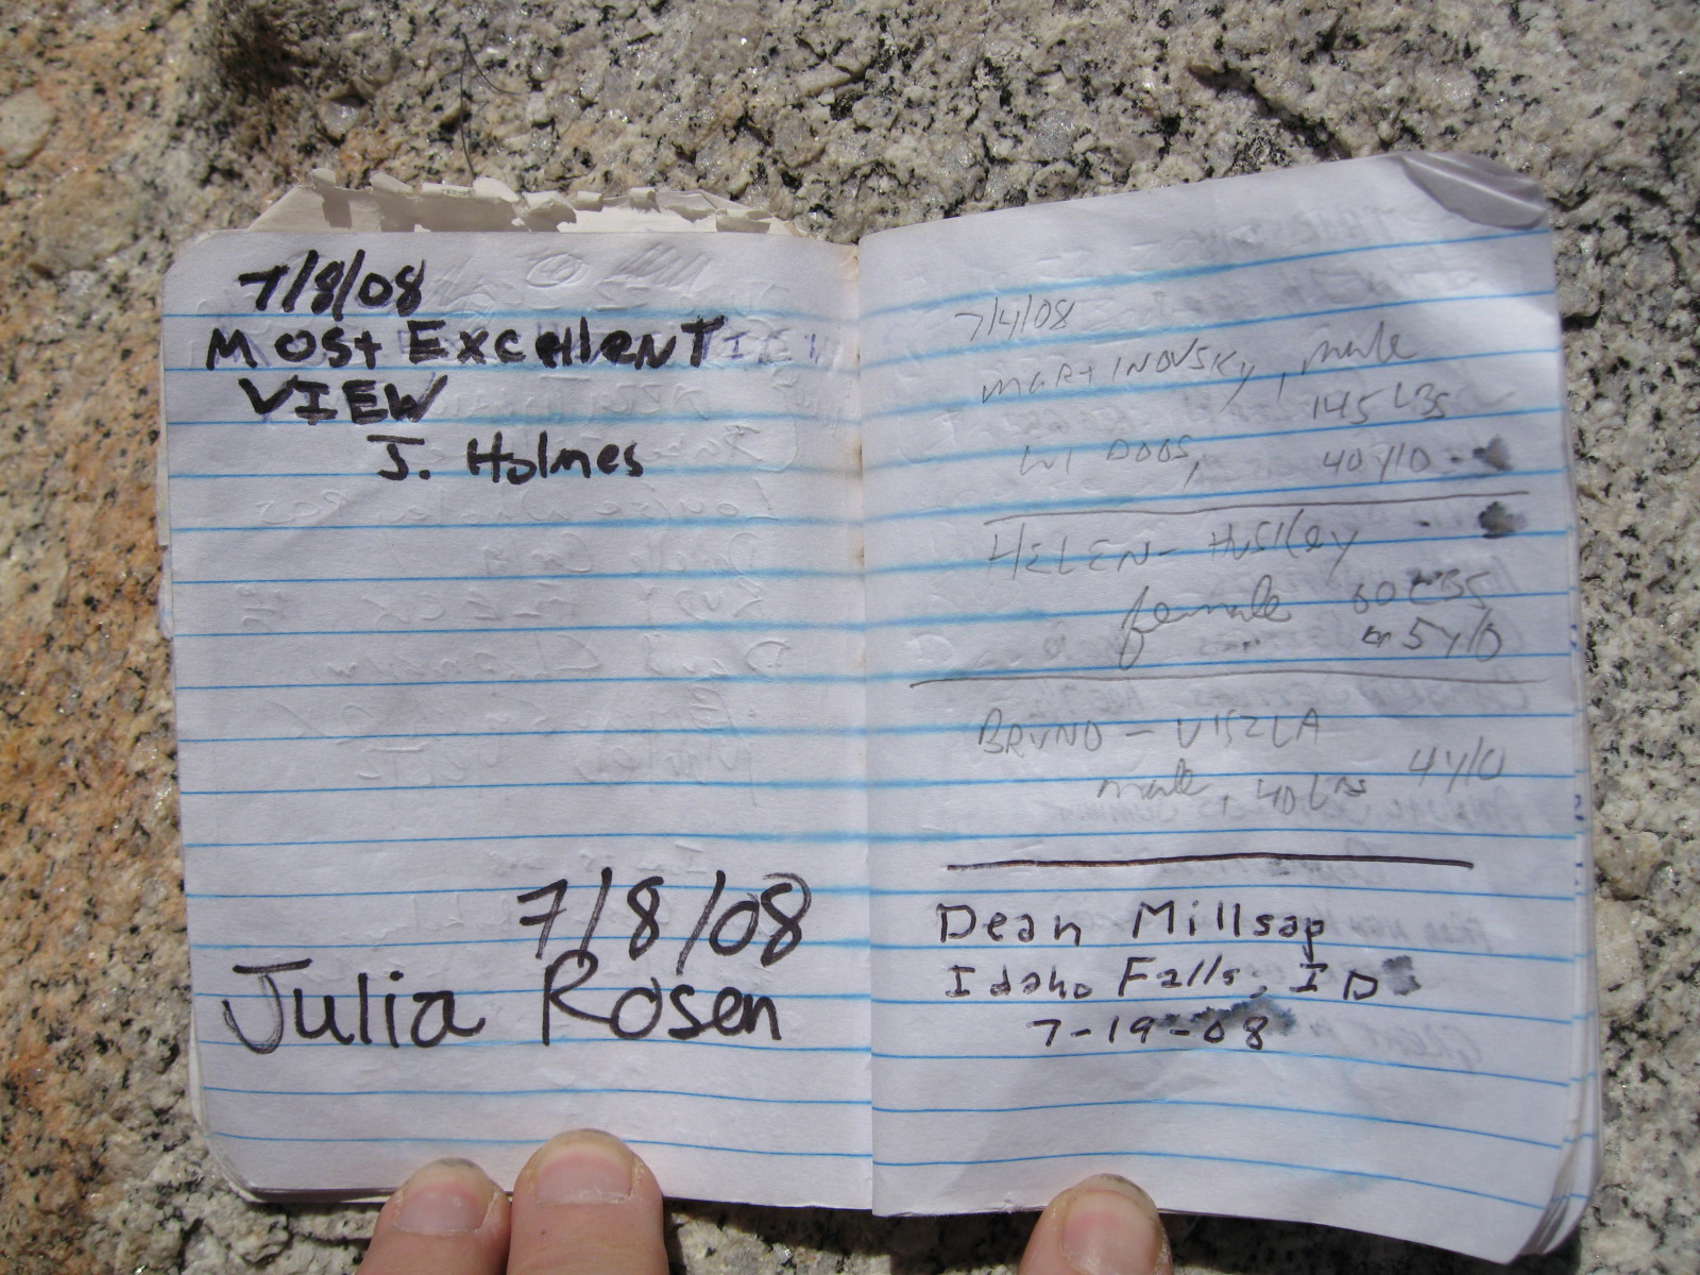 7/8/08
MOST EXCEllENT
VIEW
J. Holmes
7/8/08
Julia Rosen
7/4/08
MARTINOVSKY, male
145 LBS
W/ DOGS, 40 Y/O
HELEN - HUSKEY
female 60 LBS
5 Y/O
BRUNO - VISZLA
male, 40 LBS 4 Y/O
Dean Millsap
Idaho Falls, ID
7-19-08